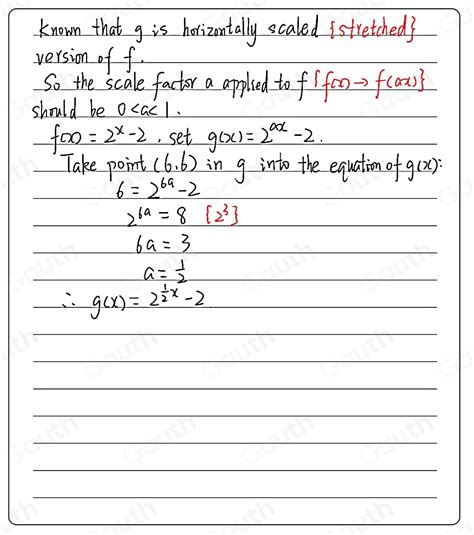 Known that g is horizontally scaled {stretched}
version of f.
So the scale factor a applied to f {f(x) → f(ax)}
should be 0<a<1.
f(x) = 2^x - 2 , set g(x) = 2^{ax} - 2.
Take point (6,6) in g into the equation of g(x):
6 = 2^{6a} - 2
2^{6a} = 8 {2^3}
6a = 3
a = 1/2
∴ g(x) = 2^{1/2 x} - 2
Gauth